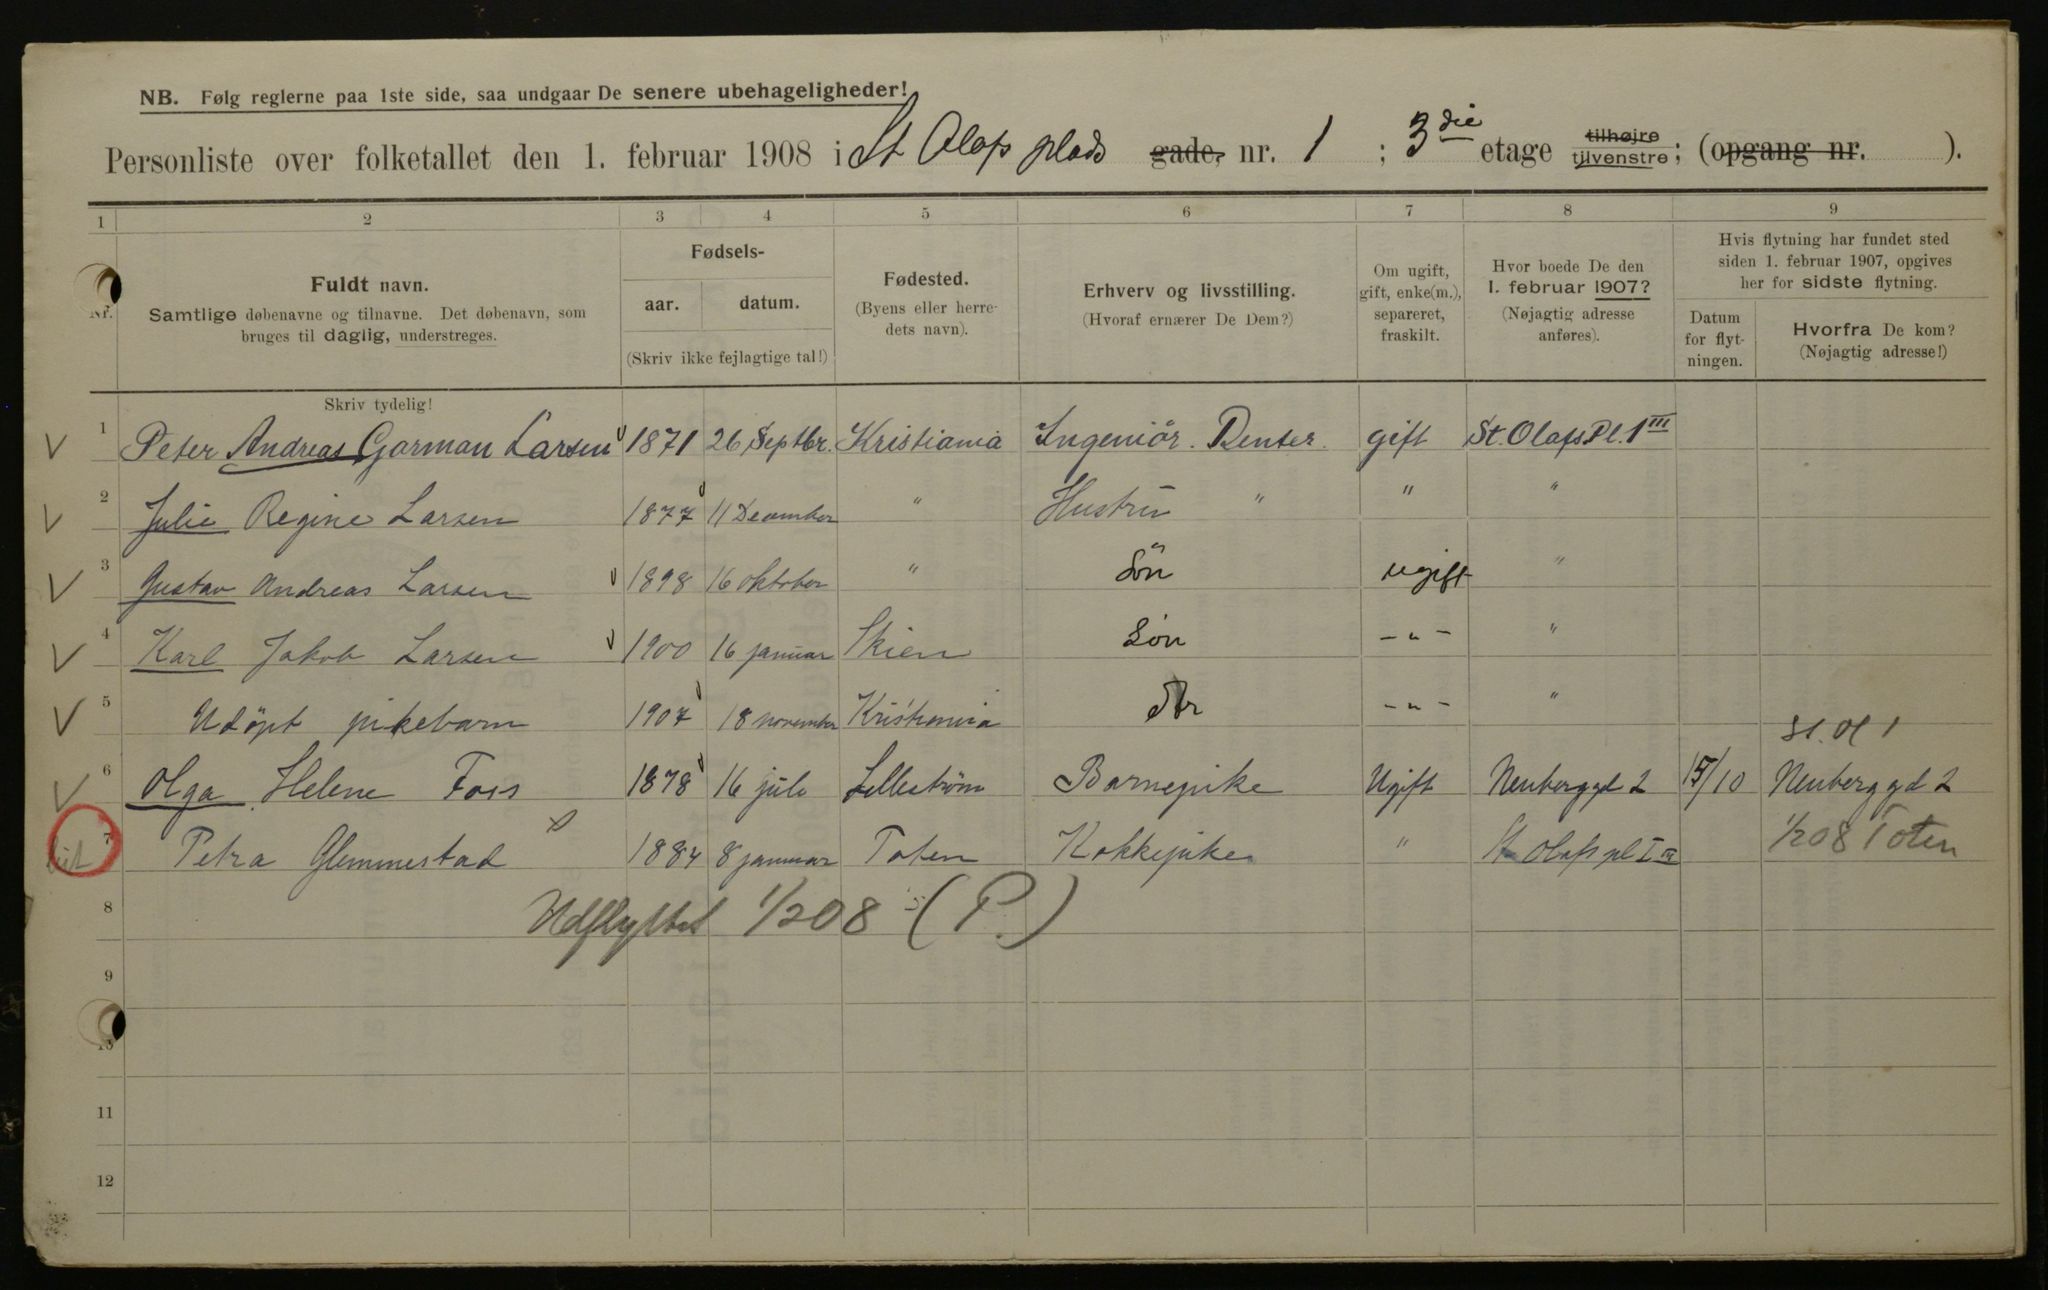 NB. Følg reglerne paa 1ste side, saa undgaar De senere ubehageligheder!
Personliste over folketallet den 1. februar 1908 i St Olafs plads gade, nr. 1 ; 3die etage tilhøjre tilvenstre; (opgang nr. ).
1 2 3 4 5 6 7 8 9
Nr.
Fuldt navn.
Samtlige døbenavne og tilnavne. Det døbenavn, som
bruges til daglig, understreges.
Skriv tydelig!
Fødsels-
aar. datum.
(Skriv ikke fejlagtige tal!)
Fødested.
(Byens eller herre-
dets navn).
Erhverv og livsstilling.
(Hvoraf ernærer De Dem?)
Om ugift,
gift, enke(m.),
separeret,
fraskilt.
Hvor boede De den
1. februar 1907?
(Nøjagtig adresse
anføres).
Hvis flytning har fundet sted
siden 1. februar 1907, opgives
her for sidste flytning.
Datum
for flyt-
ningen.
Hvorfra De kom?
(Nøjagtig adresse!)
1 Peter Andreas Gorman Larsen 1871 26 Septbr. Kristiania Ingeniör. Renter. gift St. Olafs Pl. 1 III
2 Julie Regine Larsen 1877 11 December " Hustru " " "
3 Gustav Andreas Larsen 1898 16 oktober " Sön ugift "
4 Karl Jakob Larsen 1900 16 januar Skien Sön - " - "
5 Udöpt pikebarn 1907 18 november Kristiania dtr - " - "
St. Ol 1
6 Olga Helene Foss 1878 16 juli Lilleström Barnepike Ugift Neuberggd 2 15/10 Neuberggd 2
7 Petra Glemmestad 1884 8 januar Toten Kokkepike " St Olafs pl I III 1/2 08 Toten
8 Udflyttet 1/2 08 (P.)
9
10
11
12